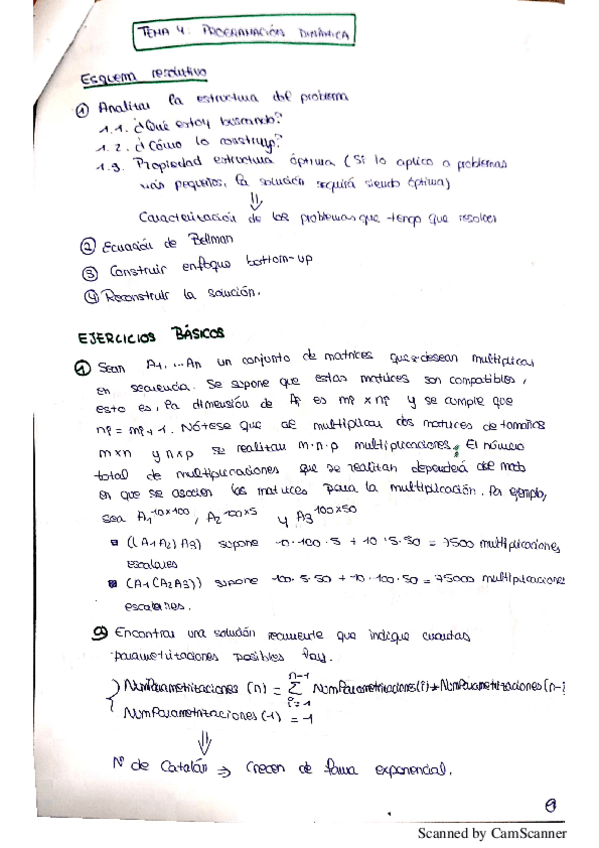 TEMA 4. PROGRAMACIÓN DINÁMICA
Esquema resolutivo
① Analizar la estructura del problema
1.1. ¿Qué estoy buscando?
1.2. ¿Cómo lo construyo?
1.3. Propiedad estructura óptima (Si lo aplico a problemas
más pequeños, la solución seguirá siendo óptima)
⇓
Caracterización de los problemas que tengo que resolver
② Ecuación de Bellman
③ Construir enfoque bottom-up
④ Reconstruir la solución.
EJERCICIOS BÁSICOS
① Sean A1, ... An un conjunto de matrices que desean multiplicar
en secuencia. Se supone que estas matrices son compatibles,
esto es, la dimensión de Ai es mi x ni y se cumple que
ni = mi+1. Nótese que al multiplicar dos matrices de tamaños
m x n y n x p se realizan m·n·p multiplicaciones. El número
total de multiplicaciones que se realizan dependerá del modo
en que se asocien las matrices para la multiplicación. Por ejemplo,
sea A1^10x100, A2^100x5 y A3^100x50
▪ ((A1A2)A3) supone 10·100·5 + 10·5·50 = 7500 multiplicaciones
escalares
▪ (A1(A2A3)) supone 100·5·50 + 10·100·50 = 75000 multiplicaciones
escalares.
a) Encontrar una solución recurrente que indique cuantas
parametrizaciones posibles hay.
n-1
{ NumParametrizaciones (n) = Σ NumParametrizaciones(i) * NumParametrizaciones(n-i
i=1
NumParametrizaciones (1) = 1
⇓
Nº de Catalán ⇒ Crecen de forma exponencial.
Scanned by CamScanner